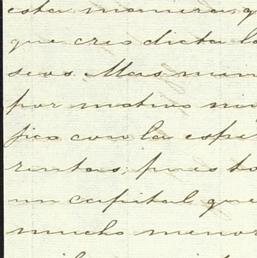 esta manera, q
que creo dicta la
seos. Mas nun
por motivo nin
fico con la espe
rentas; pues to
un capital que
mucho menor